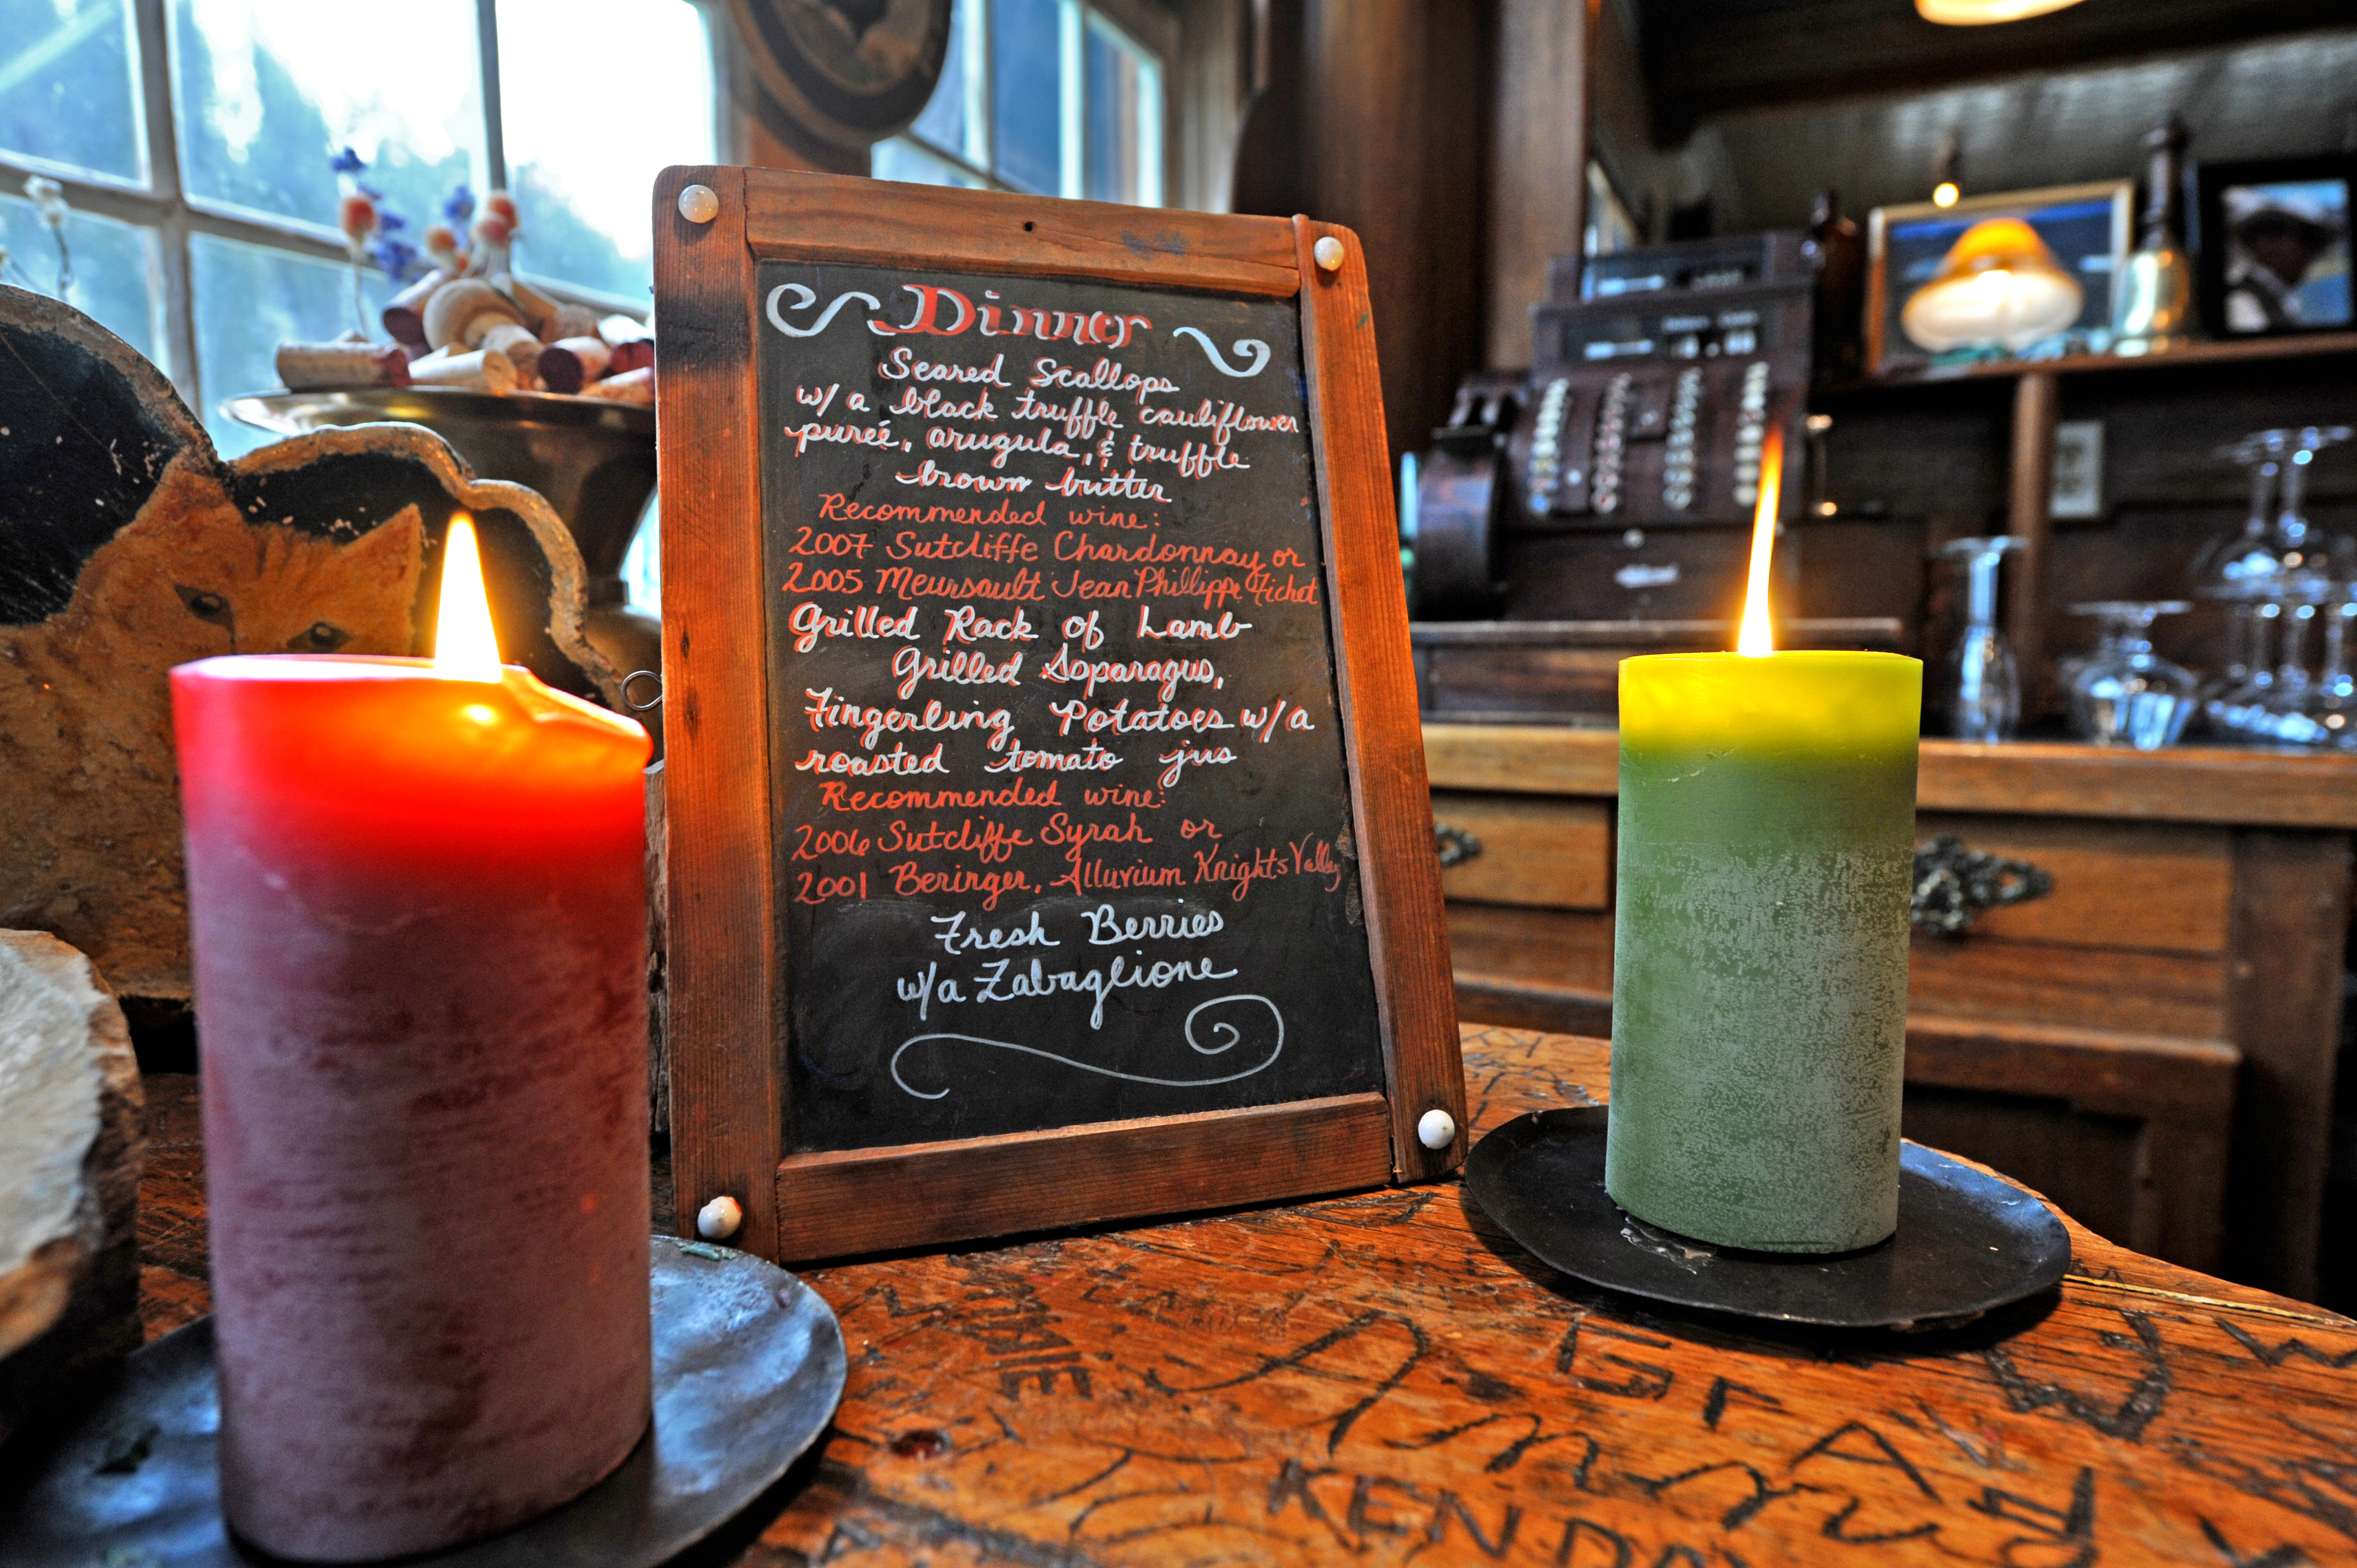 Dinner
Seared Scallops
w/ a black truffle cauliflower
pureé, arugula, & truffle
brown butter
Recommended wine:
2007 Sutcliffe Chardonnay or
2005 Meursault Jean Phillippe Fichet
Grilled Rack of Lamb
Grilled Asparagus,
Fingerling Potatoes w/a
roasted tomato jus
Recommended wine:
2006 Sutcliffe Syrah or
2001 Beringer, Alluvium Knights Valley
Fresh Berries
w/a Zabaglione
KENDA